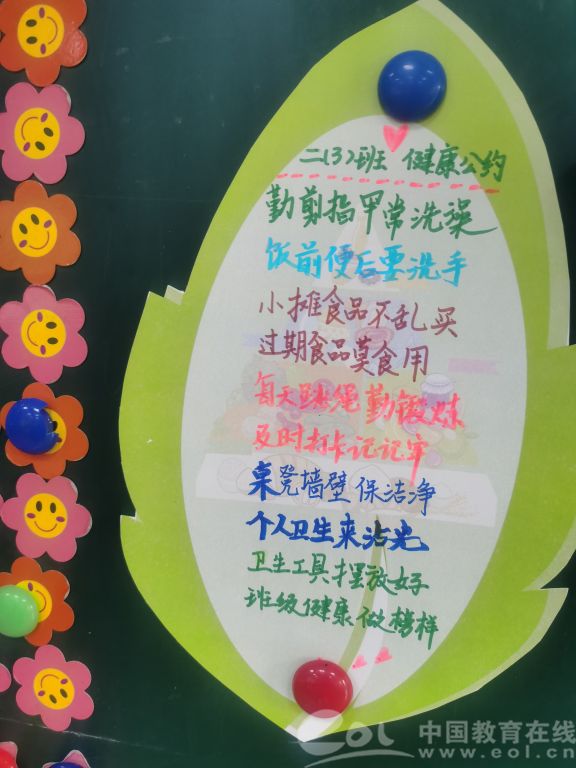 二(3)班 健康公约
勤剪指甲常洗澡
饭前便后要洗手
小摊食品不乱买
过期食品莫食用
每天跳绳勤锻炼
及时打卡记记牢
桌凳墙壁保洁净
个人卫生来沾光
卫生工具摆放好
班级健康做榜样
eol 中国教育在线
www.eol.cn